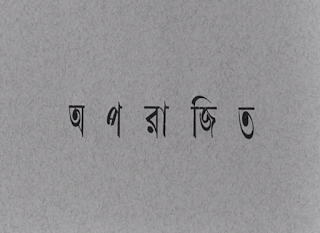 অ প রা জি ত